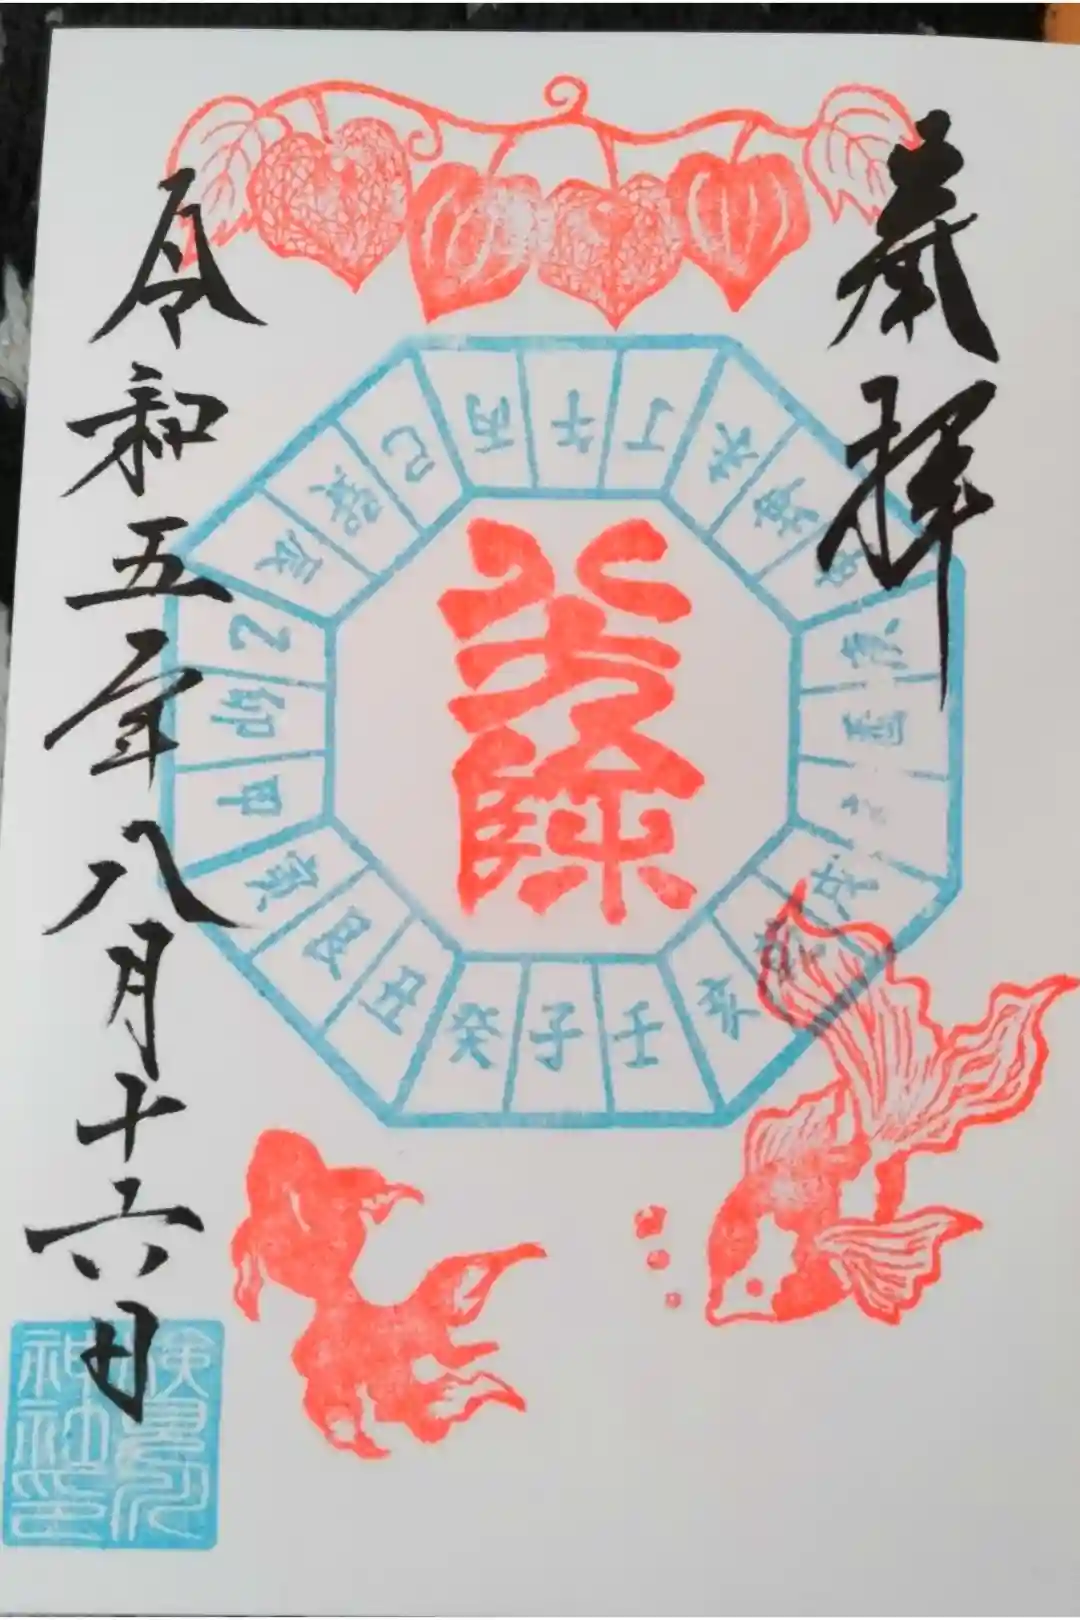 奉拝
八方除
丙
午
丁
未
坤
庚
酉
戌
亥
壬
子
癸
丑
艮
寅
甲
卯
乙
辰
巽
巳
令和五年八月十六日
検見川
神社印